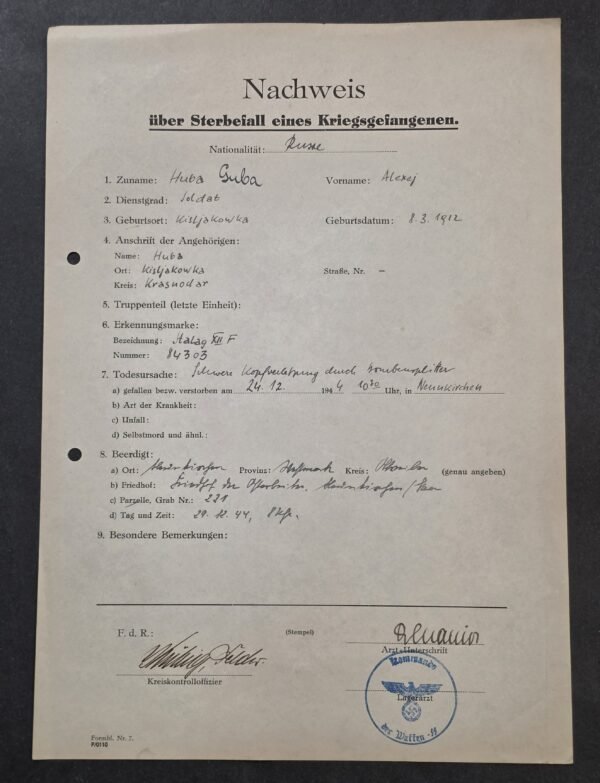 Nachweis
über Sterbefall eines Kriegsgefangenen.
Nationalität: Russe
1. Zuname: Huba Guba Vorname: Alexej
2. Dienstgrad: Soldat
3. Geburtsort: Kisljakowka Geburtsdatum: 8.3.1912
4. Anschrift der Angehörigen:
Name: Huba
Ort: Kisljakowka Straße, Nr. –
Kreis: Krasnodar
5. Truppenteil (letzte Einheit):
6. Erkennungsmarke:
Bezeichnung: Stalag XII F
Nummer: 84303
7. Todesursache: Schwere Kopfverletzung durch Bombensplitter
a) gefallen bezw. verstorben am 24.12. 1944 10³⁰ Uhr, in Neunkirchen
b) Art der Krankheit:
c) Unfall:
d) Selbstmord und ähnl.:
8. Beerdigt:
a) Ort: Neunkirchen Provinz: Westmark Kreis: Ottweiler (genau angeben)
b) Friedhof: Friedhof der Ostarbeiter, Neunkirchen/Saar
c) Parzelle, Grab Nr.: 221
d) Tag und Zeit: 29.12.44, 8 Uhr.
9. Besondere Bemerkungen:
F. d. R.: (Stempel)
Arzt-Unterschrift
Kreiskontrolloffizier
Kommando
Lagerarzt
der Waffen-SS
Formbl. Nr. 7.
P/0110